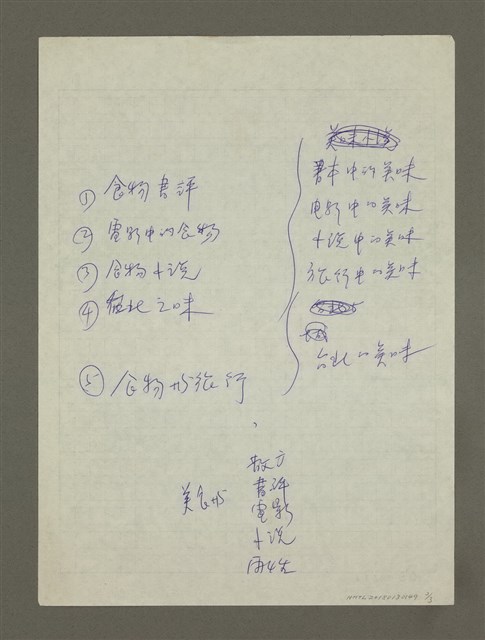 ① 食物書評
② 電影中的食物
③ 食物小说
④ 台北之味
⑤ 食物与旅行
書本中的美味
电影中的美味
小说中的美味
旅行中的美味
台北的美味
美食与
散文
書评
電影
小说